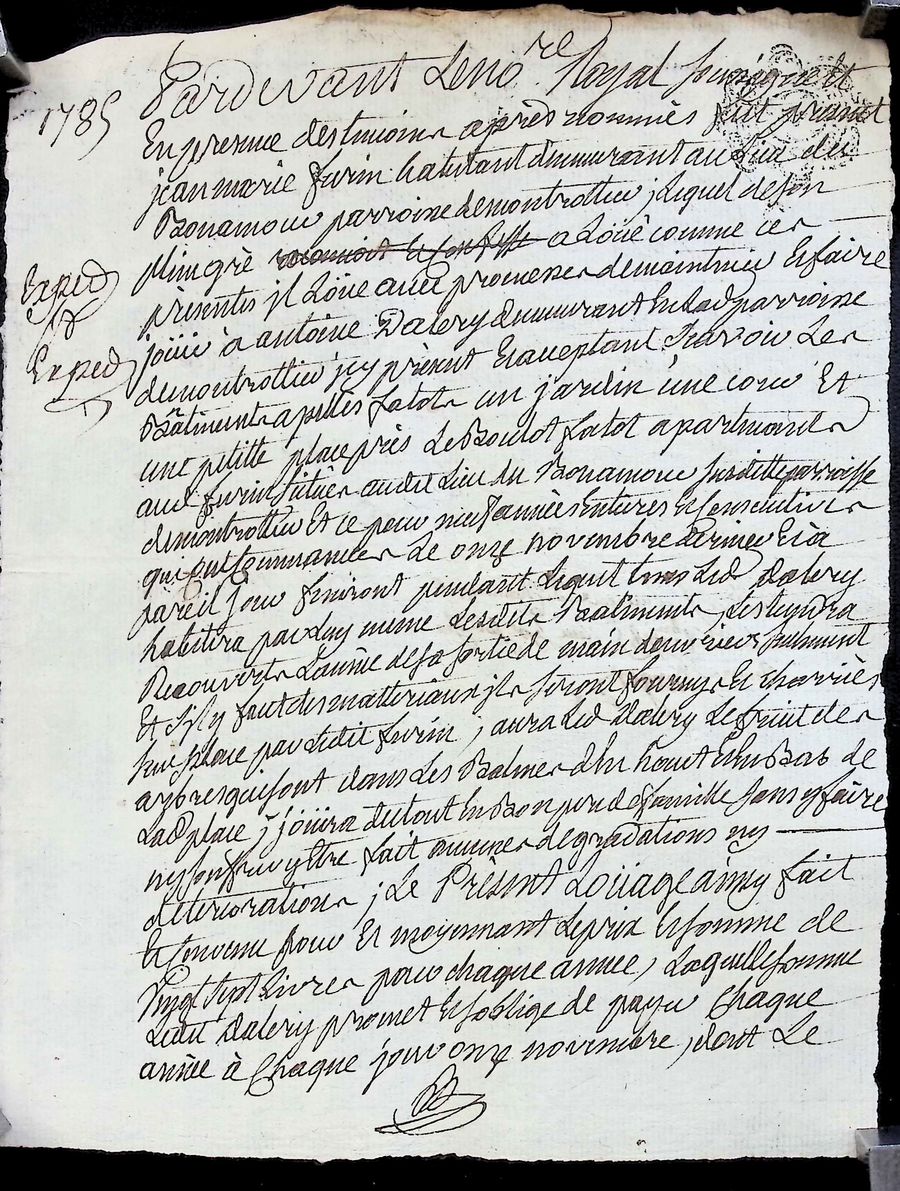 Pardevant Le no.re Royal soussigné et
1785
En presence des temoins après nommés fut present
jean marie furin habitant demeurant au lieu du
Bonamour parroisse de montrottier ; lequel de son
Expéd
plein gré a Loüé comme ces
presentes il Loüe avec promesse de maintenir Et faire
joüir à antoine Dalery demeurant En lad parroisse
Expéd
de montrottier icy présent Et acceptant Sçavoir Les
Bâtiments apellés fatot un jardin une cour Et
une petitte place près Le fatot apartenants
aud furin situés audit Lieu du Bonamour susditte parroisse
de montrottier Et ce pour neuf années Entieres Et Consecutives
qui ont Commancées Le onze novembre dernier Et à
pareil jour finiront pendant Lequel tems Led Dalery
habitera par Luy meme Lesdits Batiments, Les tiendra
Recouverts L'année de sa sortie de main d'ouvriers seulement
Et s'il y faut des matteriaux ils seront fournys Et charriés
sur place par Ledit furin ; aura Led Dalery Le fruit des
arbres qui sont dans Les Balmes d'En haut Et En Bas de
La D place ; joüira du tout En Bon pere de famille sans y faire
ny souffrir y Etre fait aucunes degradations ny
deteriorations ; Le Présent Loüage ainsy fait
Et Convenu pour Et moyennant Le prix Et somme de
Vingt sept Livres pour chaque année, Laquelle somme
Ledit Dalery promet Et s'oblige de payer Chaque
année à Chaque jour onze novembre, dont Le